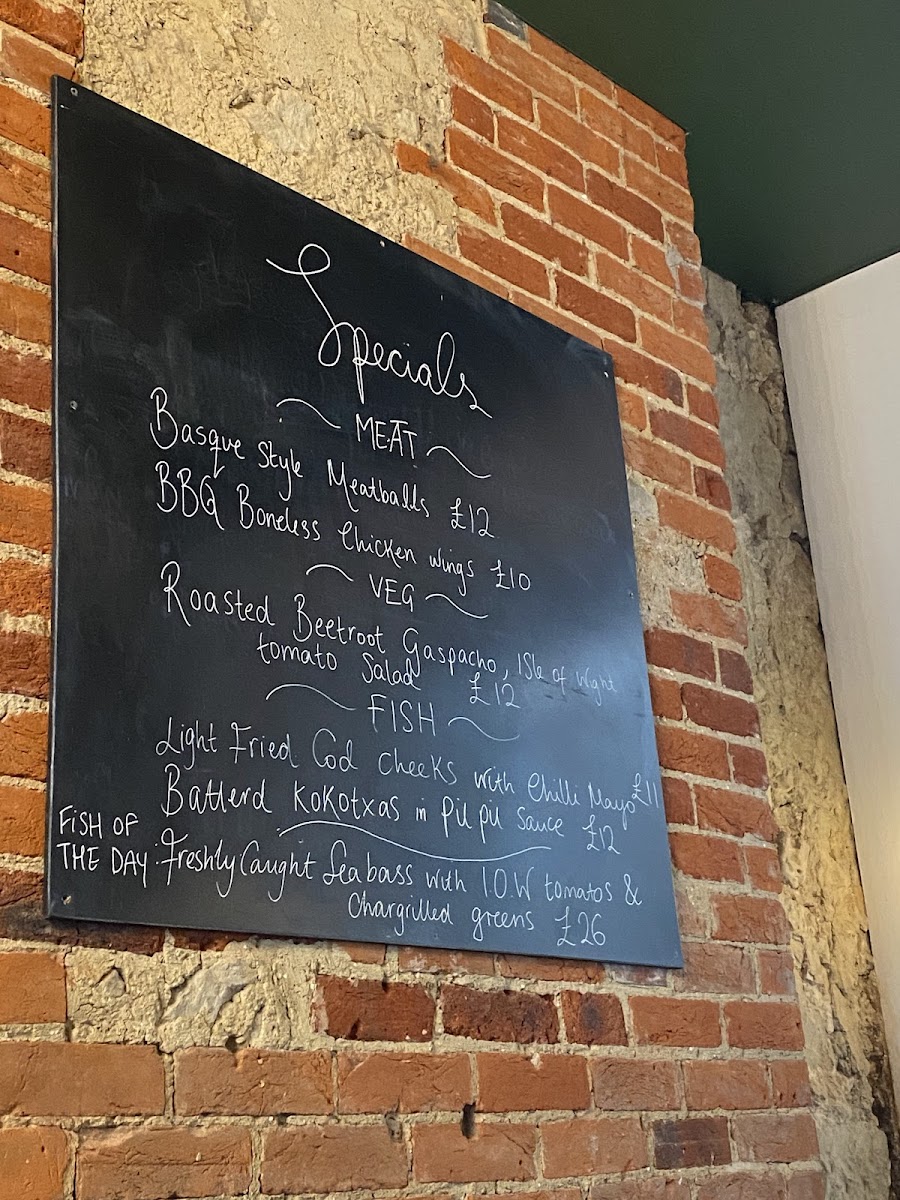 Specials
MEAT
Basque Style Meatballs £12
BBQ Boneless Chicken wings £10
VEG
Roasted Beetroot Gaspacho, Isle of Wight
tomato Salad £12
FISH
Light Fried Cod cheeks with Chilli Mayo £11
Batterd Kokotxas in Pil pil Sauce £12
FiSH OF
THE DAY: Freshly Caught Seabass with I.O.W tomatos &
Chargrilled greens £26